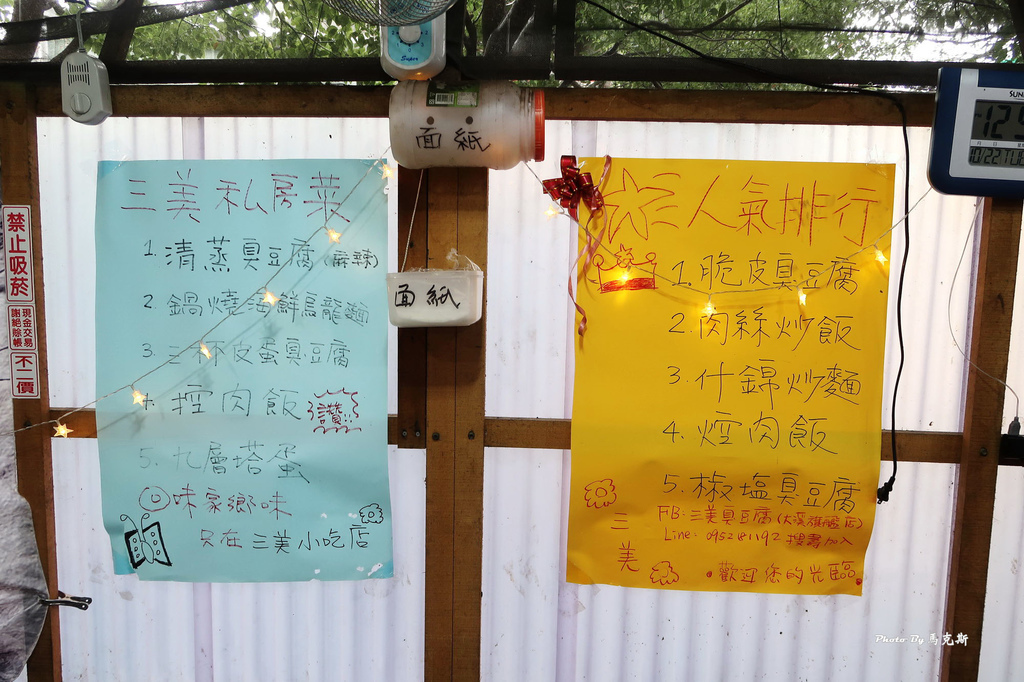 Super
面紙
SUN
12:5
10/22 TUE
禁止吸菸
現金交易
謝絕賒帳
不二價
面紙
三美私房菜
1. 清蒸臭豆腐(麻辣)
2. 鍋燒海鮮烏龍麵
3. 三杯皮蛋臭豆腐
4. 控肉飯 讚!!
5. 九層塔蛋
味家鄉味
只在三美小吃店
人氣排行
1. 脆皮臭豆腐
2. 肉絲炒飯
3. 什錦炒麵
4. 焢肉飯
5. 椒塩臭豆腐
FB: 三美臭豆腐(大溪旗艦店)
Line: 095281192 搜尋加入
三美
歡迎您的光臨
Photo By 馬克斯